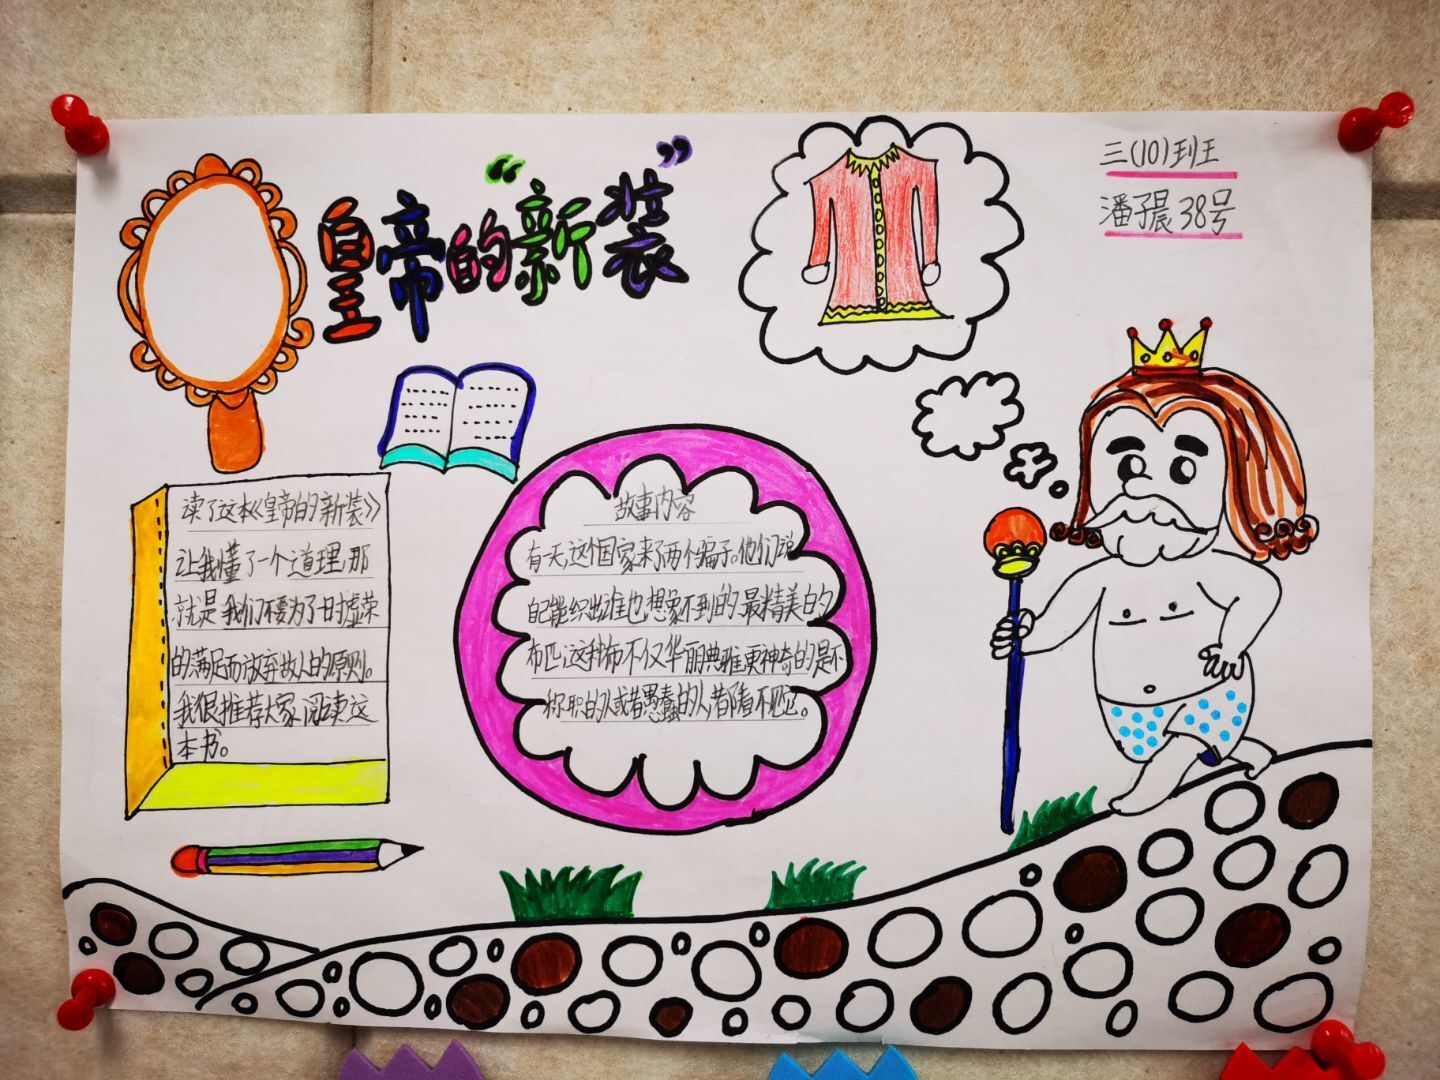 皇帝的“新装”
三(10)班
潘子晨 38号
读了这本《皇帝的新装》
让我懂了一个道理,那
就是我们不要为了一时虚荣
的满足而放弃做人的原则。
我很推荐大家阅读这
本书。
故事内容
有天,这个国家来了两个骗子。他们说
自己能织出谁也想象不到的最精美的
布匹,这种布不仅华丽典雅更神奇的是不
称职的人或者愚蠢的人,都看不见它。